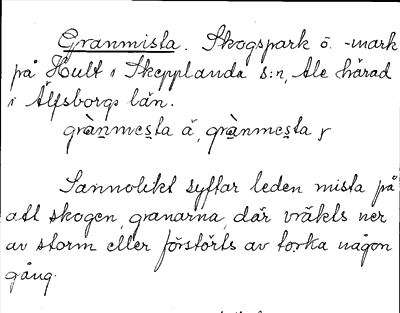 Granmista. Skogspark o. -mark
på Hult i Skepplanda s:n, Ale härad
i Älfsborgs län.
grànmesta ä, grànmesta y
Sannolikt syftar leden mista på
att skogen, granarna, där vräkts ner
av storm eller förstörts av torka någon
gång.